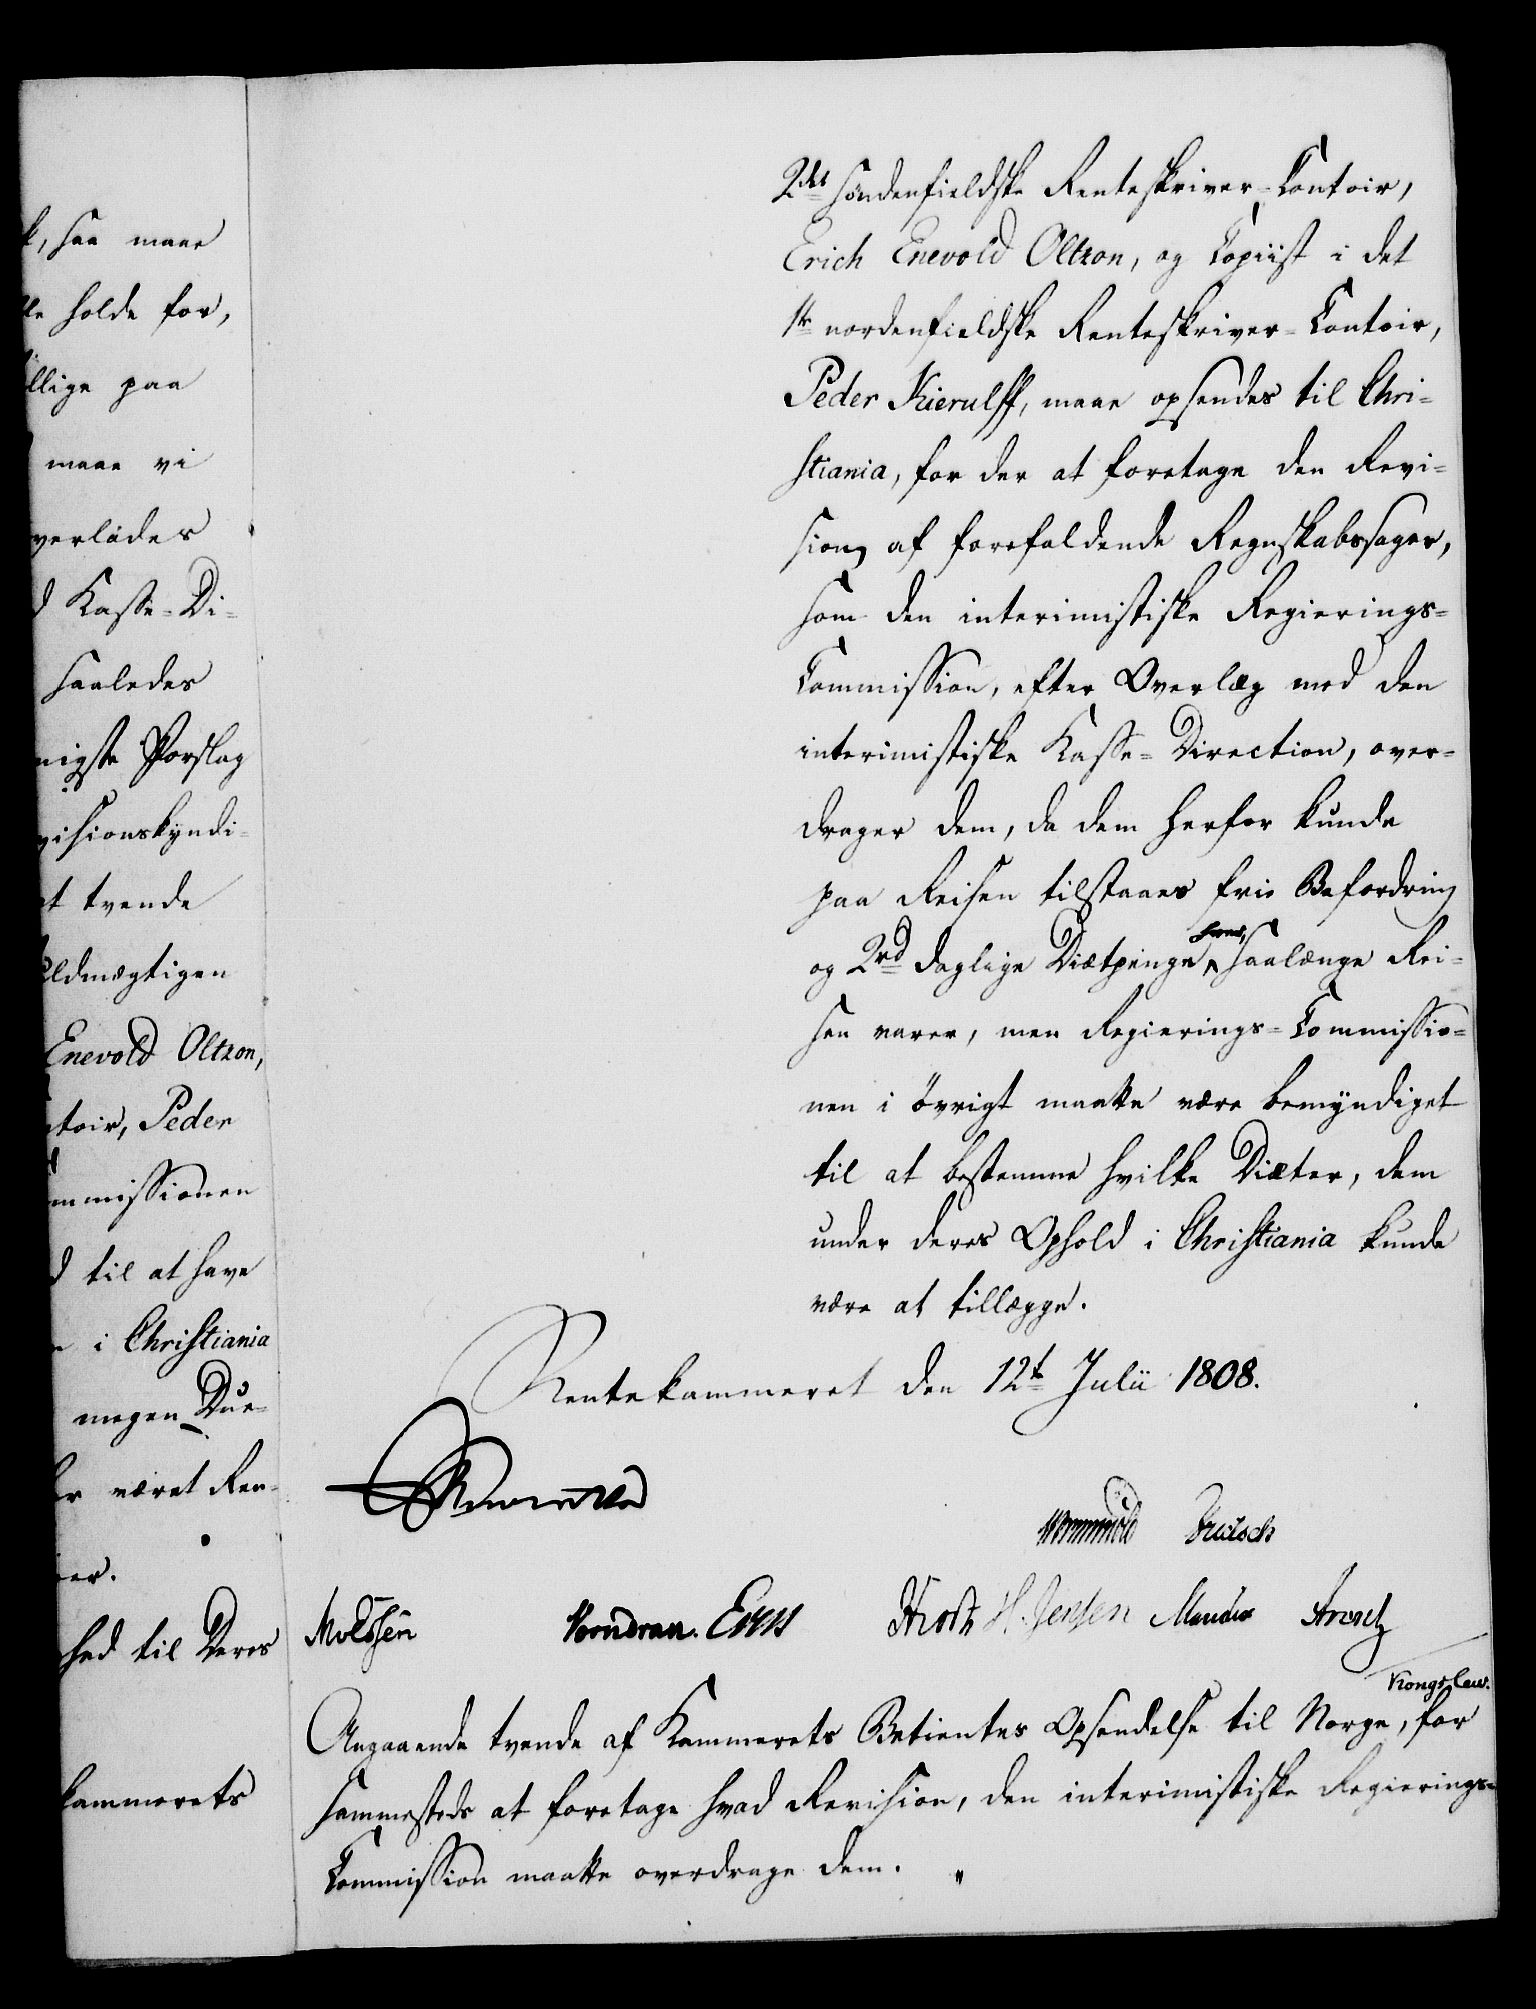 k, saa maae
lle holde for,
llige paa
maae vi
verlades
d Kasse-Di-
saaledes
nigste Forslag
visionskyndi-
at tvende
uldmægtigen
Enevold Oltzon,
ntoir, Peder
mmissionen
d til at have
i Christiania
megen Due-
er været Ren-
er.
hed til Deres
kammerets
2det søndenfieldske Renteskriver-Contoir,
Erich Enevold Oltzon, og Copiist i det
1te nordenfieldske Renteskriver-Contoir,
Peder Kierulff, maae opsendes til Chri-
stiania, for der at foretage den Revi-
sion af forefaldende Regnskabssager,
som den interimistiske Regierings-
Commission, efter Overlæg med den
interimistiske Kasse-Direction, over-
drager dem, da dem herfor kunde
paa Reisen tilstaaes frie Befordring
hver,
og 2rd daglige Diætpenge saalænge Rei-
sen varer, men Regierings-Commissio-
nen i øvrigt maatte være bemyndiget
til at bestemme hvilke Diæter, dem
under deres Ophold i Christiania kunde
være at tillægge.
Rentekammeret den 12te Julii 1808.
Wormskiold
Knudsen Vorndran. H. Jensen
Kongslew.
Angaaende tvende af Kammerets Betientes Opsendelse til Norge, for
sammesteds at foretage hvad Revision, den interimistiske Regierings-
Commission maatte overdrage dem.